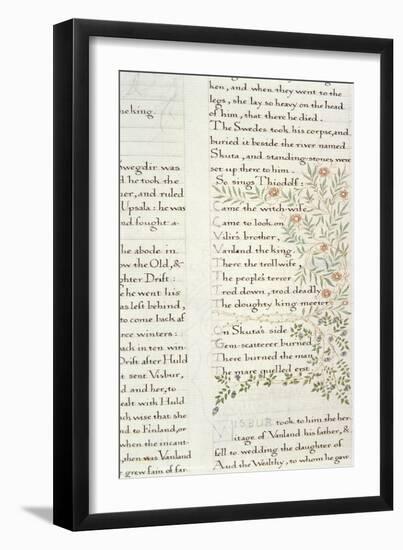 he king.
wegdir was
d he took the
er, and ruled
Upsala: he was
nd fought a-
he abode in
ow the Old, &
ghter Drift:
he went his
as left behind,
to come back af
ree winters:
back in ten win-
Drift after Huld
t sent Visbur,
d and her, to
ealt with Huld
ch wise that she
nd to Finland, or
when the incant-
, then was Vanland
r grew fain of far
ken, and when they went to the
legs, she lay so heavy on the head
of him, that there he died.
The Swedes took his corpse, and
buried it beside the river named
Skuta, and standing-stones were
set up there to him.
So sings Thiodolf:
Came the witch-wife
Came to look on
Vilir's brother,
Vanland the king.
There the trollwife,
The people's terror
Trod down, trod deadly
The doughty king meeter.
On Skuta's side
Gem-scatterer burned
There burned the man
The mare quelled erst.
VISBUR took to him the her-
itage of Vanland his father, &
fell to wedding the daughter of
Aud the Wealthy, to whom he gave